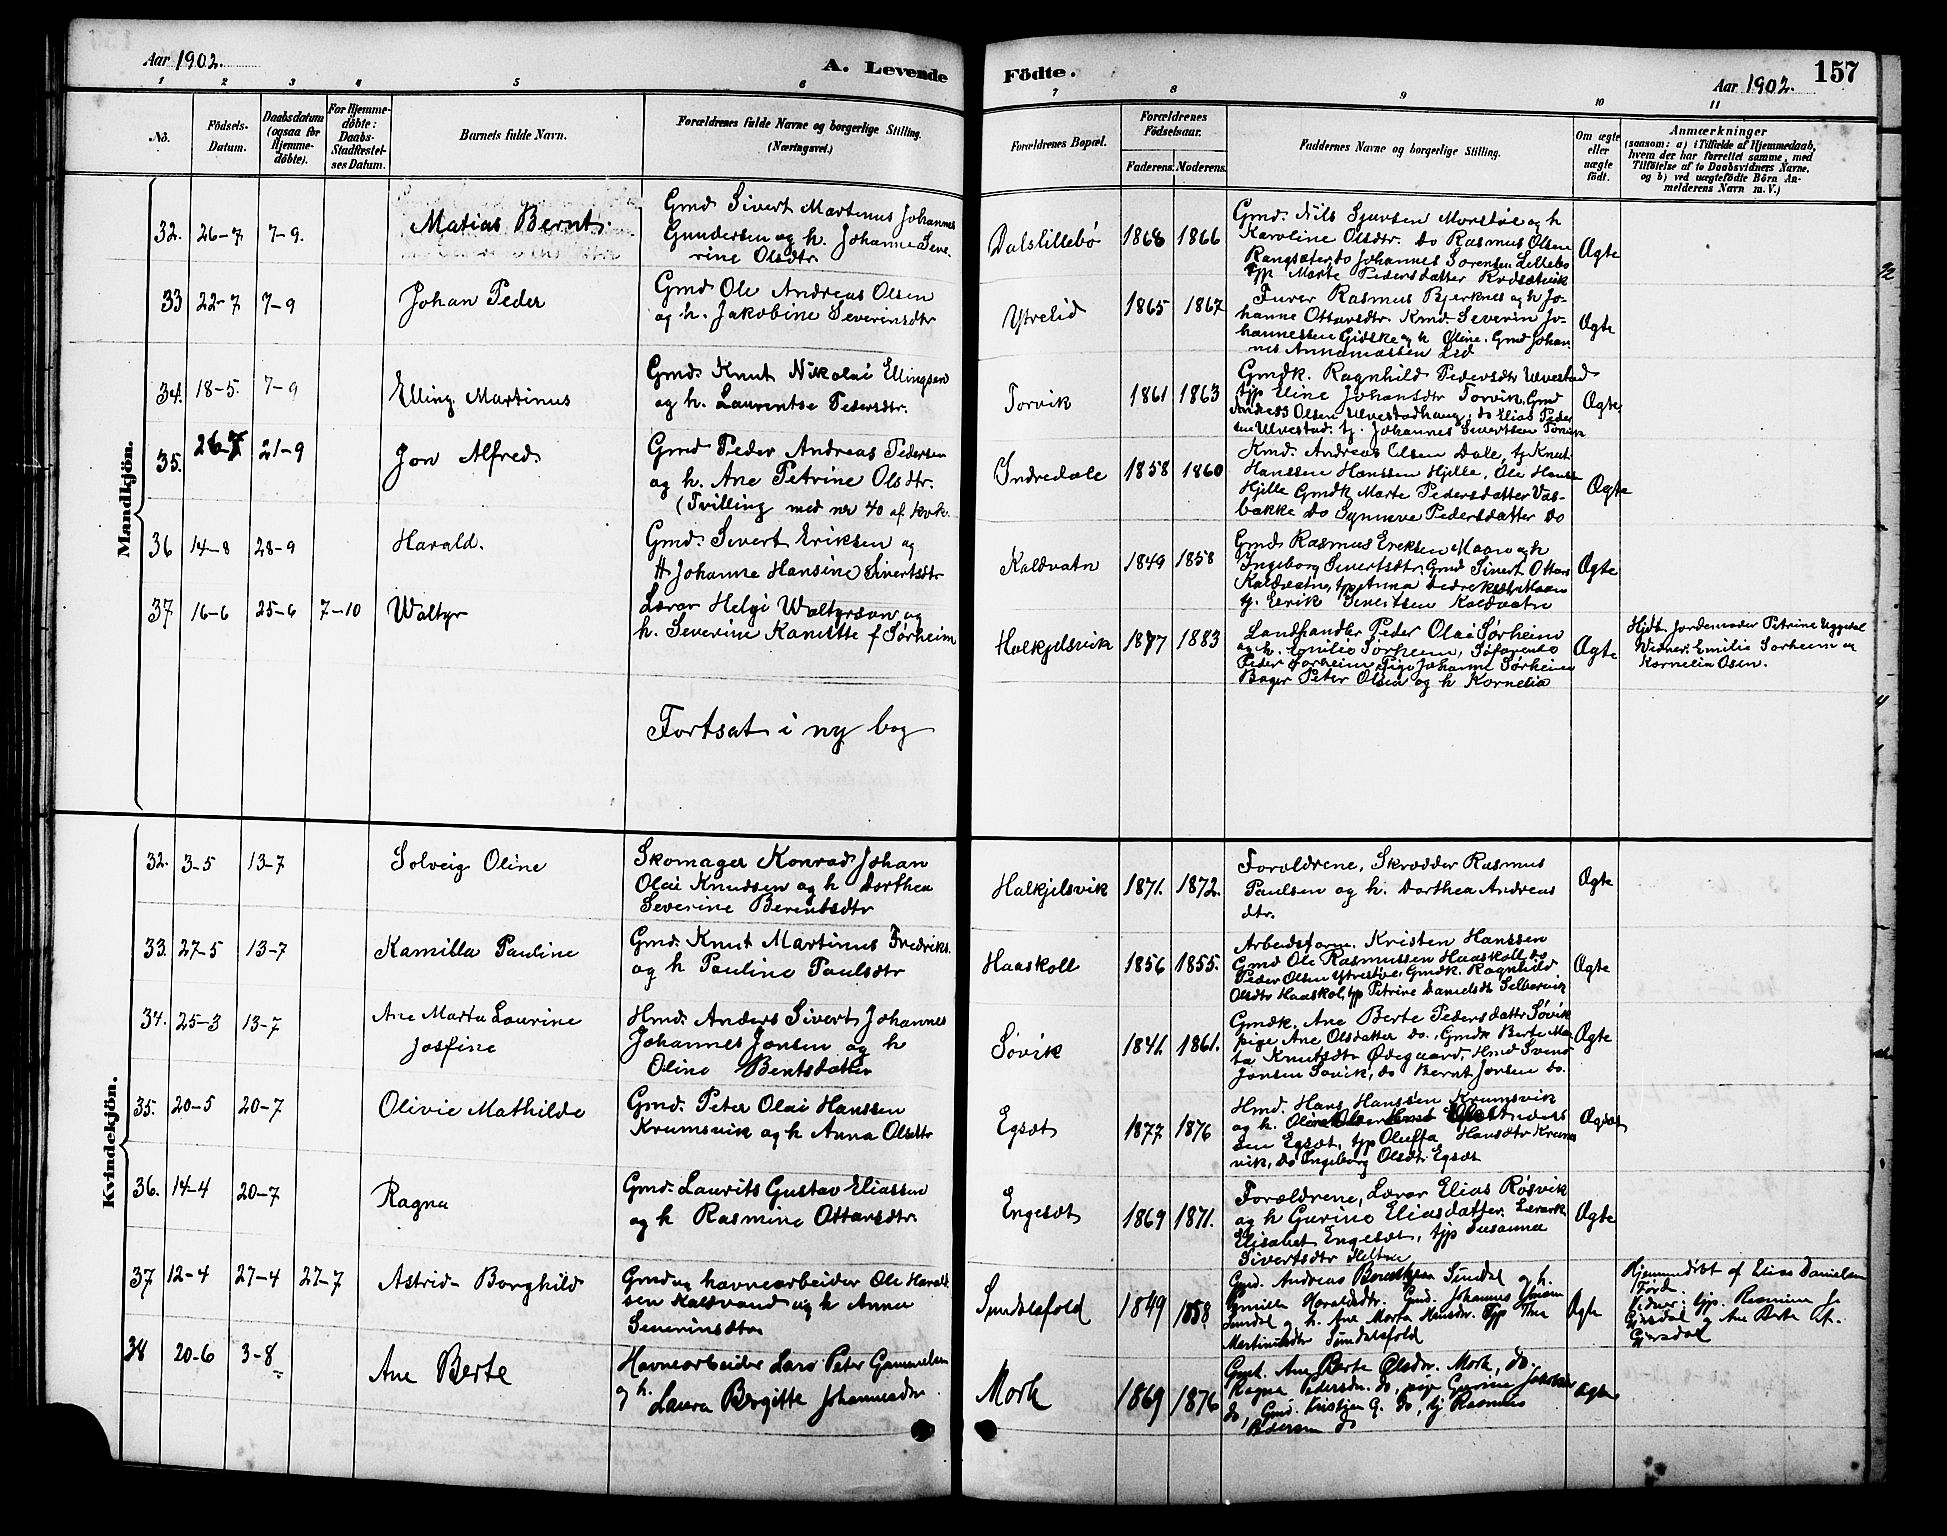 Aar 1902.
A. Levende Födte.
157
Aar 1902.
1 2 3 4 5 6 7 8 9 10 11
No.
Födsels-
Datum.
Daabsdatum
(ogsaa for
Hjemme-
döbte).
For Hjemme-
döbte:
Daabs-
Stadfestel-
ses Datum.
Barnets fulde Navn.
Forældrenes fulde Navne og borgerlige Stilling.
(Næringsvei.)
Forældrenes Bopæl.
Forældrenes
Födselsaar.
Faderens. Moderens.
Faddernes Navne og borgerlige Stilling.
Om ægte
eller
uægte
födt.
Anmærkninger
(saasom: a) i Tilfælde af Hjemmedaab,
hvem der har forrettet samme, med
Tilföielse af to Daabsvidners Navne,
og b) ved uægtefödte Börn An-
melderens Navn m. V.)
Mandkjön.
32. 26-7 7-9. Matias Bernt.
Gmd. Sivert Martinus Johannes
Gundersen og h. Johanne Seve-
rine Olsdtr
Dalslillebø 1868 1866
Gmd. Nils Sjursen Morstøl og h
Karoline Olsdtr. do Rasmus Olsen
Rangsæter do Johannes Sørensen Lillebø
tjp Marte Pedersdatter
Ægte
33 22-7 7-9 Johan Peder
Gmd Ole Andreas Olsen
og h. Jakobine Severinsdtr
Ytrelid 1865 1867
Furer Rasmus Bjerknes og h Jo-
hanne Ottarsdtr. Kmd Severin Jo-
hannessen Gidske og h Oline. Gmd Johan
nes Annamassen Lid
Ægte
34. 18-5. 7-9 Elling Martinus
Gmd. Knut Nikolai Ellingsen
og h. Laurentse Pedersdtr.
Torvik 1861 1863
Gmdk. Ragnhild Pedersdtr Ulvestad
tjp Eline Johansdtr Torvik, Gmd
Andreas Olsen Ulvestadhaug, do Elias Peder
sen Ulvestad. tj. Johannes Sivertsen
Ægte
35. 26-7 21-9 Jon Alfred.
Gmd Peder Andreas Pedersen
og h. Ane Petrine Olsdtr.
(Tvilling med nr 40 af kvk.
Indredale 1858 1860
Kmd. Andreas Olsen Dale, tj Knut
Hanssen Hanssen Hjelle, Ole Hanss
Hjelle Gmdk Marte Pedersdatter Vas-
bakke do Synneve Pedersdatter do
Ægte
36 14-8 28-9 Harald.
Gmd. Sivert Eriksen og
H Johanne Hansine Sivertsdtr
Kaldvatn 1849 1858
Gmd. Rasmus Eriksen Maan og h
Ingeborg Sivertsdtr. Gmd Sivert Ottars
Kaldvatn, tjp Anna
tj. Eerik Sivertsen Kaldvatn
Ægte
37 16-6 25-6 7-10 Waltyr
Lærar Helgi Waltyrson og
h. Severine Kamitte f Sørheim
Halkjelsvik 1877 1883
Landhandler Peder Olai Sørheim
og h. Emilie Sørheim, Søfarende
Peder Sorheim Pige Johanne Sørheim
Bager Peter Olsen og h Kornelia
Ægte
Hjdb. Jordemoder Petrine Uggedal
Vidner: Emilie Sorheim og
Kornelia Osen.
Fortsat i ny bog
Kvindekjön.
32. 3-5 13-7 Solveig Oline
Skomager Konrad Johan
Olai Knudsen og h Dorthea
Severine Berentsdtr
Halkjelsvik 1871. 1872.
Forældrene, Skrædder Rasmus
Paulsen og h. Dorthea Andreas
dtr.
Ægte
33. 27-5 13-7 Kamilla Pauline
Gmd. Knut Martinus Fredriks.
og h Pauline Paulsdtr
Haaskoll 1856 1855.
Arbeidsform. Kristen Hanssen
Gmd Ole Rasmussen Haaskoll, do
Peder Olsen Ytrestøl, Gmdk. Ragnhild
Olsdtr Haaskol, tjp Petrine Danielsdtr
Ægte
34. 25-3 13-7 Ane Marta Laurine
Josfine
Hmd. Anders Sivert Johannes
Johannes Jonsen og h
Oline Bentsdatter
Søvik 1841. 1861.
Gmdk. Ane Berte Pedersdattr Søvik
pige Ane Olsdatter do., Gmdk Berte Mar
ta Knutsdtr Ødegaard, Hmd Svend
Jonsen Søvik, do Bernt Jonsen do.
Ægte
35. 20-5 20-7 Olivie Mathilde
Gmd. Peter Olai Hanssen
Krumsvik og h Anna Olsdtr
Egsæt 1877 1876
Hmd. Hans Hanssen Krumsvik
og h. Anders
sen Egsæt, tjp Oluffa Hansdtr Krums
vik, do Ingeborg Olsdtr Egsæt
Ægte
36. 14-4 20-7 Ragna
Gmd. Laurits Gustav Eliassen
og h Rasmine Ottarsdtr.
Engesæt 1869 1871.
Forældrene, Lærar Elias Røsvik
og h Gurine Eliasdatter. Lærark
Elisabet Engesæt, tjp Susanna
Sivertsdtr Heltne
Ægte
37 12-4 27-4 27-7 Astrid Borghild
Gmd og havnearbeider Ole Harald
sen Kaldvand og h Anna
Severinsdtr
Sundalsfold 1849 1858
Gmd. Andreas Sundal og h.
Haraldsdtr. Gmd. Johannes
Sundal og h. Ane Marta Hansdtr. Tjp Thea
Martinusdtr Sundalsfold
Ægte
Hjemmedöbt af Elias Danielsen
Förde.
Vidner: tjp. Rasmine J.
Gjersdal og Ane Berte
Gjersdal
38 20-6 3-8 Ane Berte
Havnearbeider Lars Peter Gammelsen
og h. Laura Birgitte Johannesdr.
Mork 1869 1876
Gmk. Ane Berte Olsdr. Mork, do.
Ragna Pedersdr. do, pige Gurine
do, Gmd. Kristjen G. do, tj Rasmus
Pedersen do
Ægte